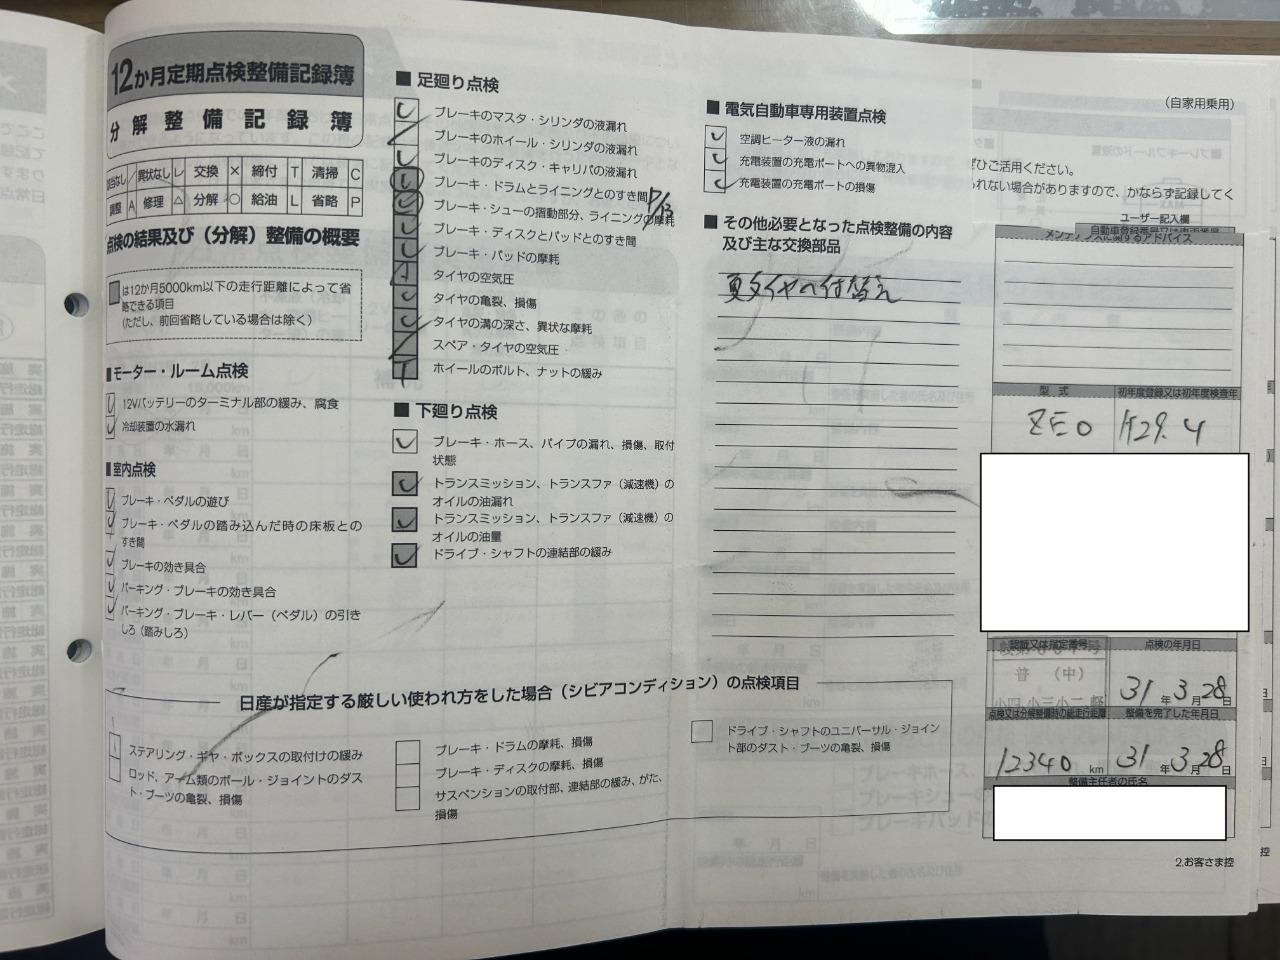 12か月定期点検整備記録簿
分解整備記録簿
該当なし ／ 異状なし レ 交換 × 締付 T 清掃 C
調整 A 修理 △ 分解 ○ 給油 L 省略 P
点検の結果及び（分解）整備の概要
は12か月5000km以下の走行距離によって省
略できる項目
(ただし、前回省略している場合は除く)
■モーター・ルーム点検
レ 12Vバッテリーのターミナル部の緩み、腐食
レ 冷却装置の水漏れ
■室内点検
レ ブレーキ・ペダルの遊び
レ ブレーキ・ペダルの踏み込んだ時の床板との
すき間
レ ブレーキの効き具合
レ パーキング・ブレーキの効き具合
レ パーキング・ブレーキ・レバー（ペダル）の引き
しろ（踏みしろ）
■ 足廻り点検
レ ブレーキのマスタ・シリンダの液漏れ
／ ブレーキのホイール・シリンダの液漏れ
レ ブレーキのディスク・キャリパの液漏れ
レ ブレーキ・ドラムとライニングとのすき間
レ ブレーキ・シューの摺動部分、ライニングの摩耗
レ ブレーキ・ディスクとパッドとのすき間
レ ブレーキ・パッドの摩耗
A タイヤの空気圧
レ タイヤの亀裂、損傷
レ タイヤの溝の深さ、異状な摩耗
／ スペア・タイヤの空気圧
T ホイールのボルト、ナットの緩み
■ 下廻り点検
レ ブレーキ・ホース、パイプの漏れ、損傷、取付
状態
レ トランスミッション、トランスファ（減速機）の
オイルの油漏れ
レ トランスミッション、トランスファ（減速機）の
オイルの油量
レ ドライブ・シャフトの連結部の緩み
■ 電気自動車専用装置点検
レ 空調ヒーター液の漏れ
レ 充電装置の充電ポートへの異物混入
レ 充電装置の充電ポートの損傷
■ その他必要となった点検整備の内容
及び主な交換部品
夏タイヤへ付替え
（自家用乗用）
ぜひご活用ください。
れない場合がありますので、かならず記録してく
ユーザー記入欄
自動車登録番号又は車両番号
メンテナンスに関するアドバイス
型式 初年度登録又は初年度検査年
ZE0 H29.4
認証又は指定番号 点検の年月日
普（中）
小四 小三 小二 軽
31年3月28日
点検又は分解整備時の総走行距離 整備を完了した年月日
12340 km 31年3月28日
整備主任者の氏名
2.お客さま控
日産が指定する厳しい使われ方をした場合（シビアコンディション）の点検項目
ステアリング・ギヤ・ボックスの取付けの緩み
ロッド、アーム類のボール・ジョイントのダス
ト・ブーツの亀裂、損傷
ブレーキ・ドラムの摩耗、損傷
ブレーキ・ディスクの摩耗、損傷
サスペンションの取付部、連結部の緩み、がた、
損傷
ドライブ・シャフトのユニバーサル・ジョイン
ト部のダスト・ブーツの亀裂、損傷